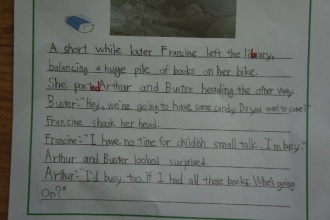 A short while later Francine left the library,
balancing a huge pile of books on her bike.
She passed Arthur and Buster heading the other way.
Buster: "Hey, we're going to have some candy. Do you want to come?"
Francine shook her head.
Francine: "I have no time for childish small talk. I'm busy."
Arthur and Buster looked surprised.
Arthur: "I'd busy too. If I had all those books. What's going
On?"